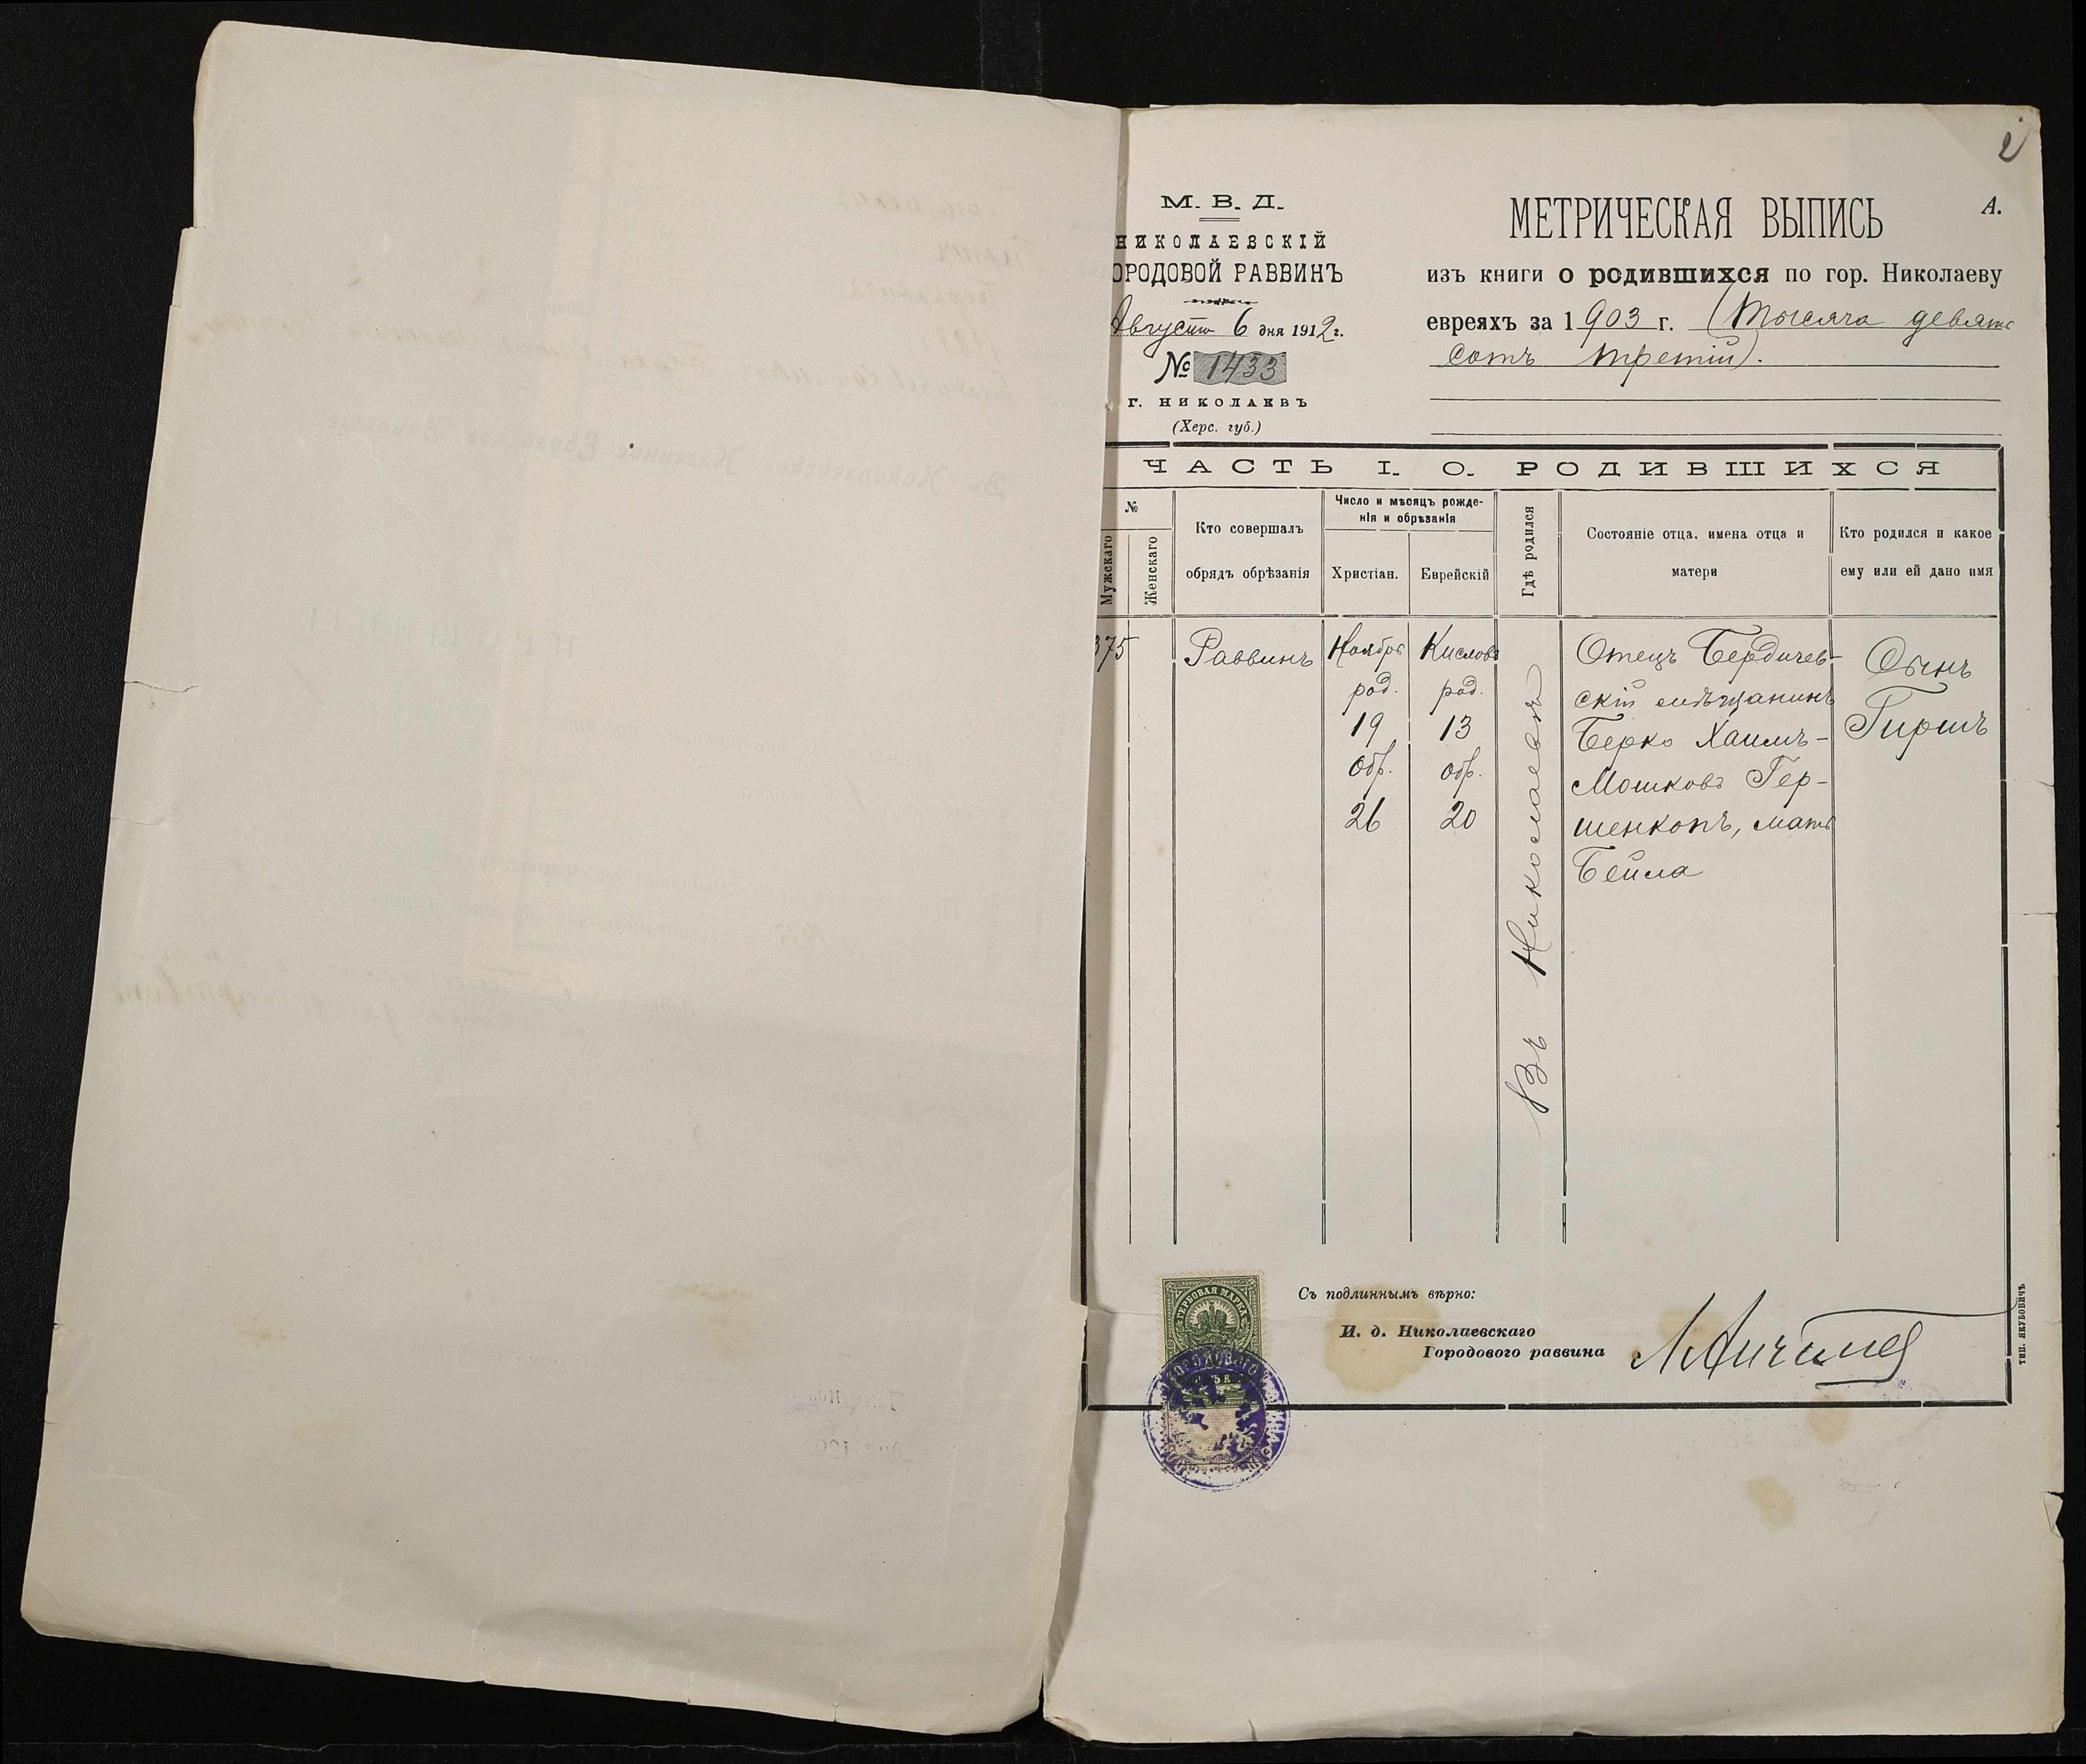 2
М. В. Д.
НИКОЛАЕВСКІЙ
ОРОДОВОЙ РАВВИНЪ
Августа 6 дня 1912 г.
№ 1433
Г. НИКОЛАЕВЪ
(Херс. губ.)
МЕТРИЧЕСКАЯ ВЫПИСЬ
А.
изъ книги о родившихся по гор. Николаеву
евреяхъ за 1903 г. (Тысяча девять
сотъ третій).
ЧАСТЬ I. О. РОДИВШИХСЯ
№
Мужскаго
Женскаго
Кто совершалъ
обрядъ обрѣзанія
Число и мѣсяцъ рожде-
нія и обрѣзанія
Христіан.
Еврейскій
Гдѣ родился
Состояніе отца, имена отца и
матери
Кто родился и какое
ему или ей дано имя
375
Раввинъ
Ноябрь
род.
19
обр.
26
Кислевъ
род.
13
обр.
20
Въ Николаевѣ
Отецъ Бердичев-
скій мѣщанинъ
Берко Хаимъ-
Мошковъ Гер-
шенкопъ, мать
Бейла
Сынъ
Гиршъ
ГЕРБОВАЯ МАРКА
Съ подлиннымъ вѣрно:
И. д. Николаевскаго
Городового раввина
ТИП. ЯКУБОВИЧЪ